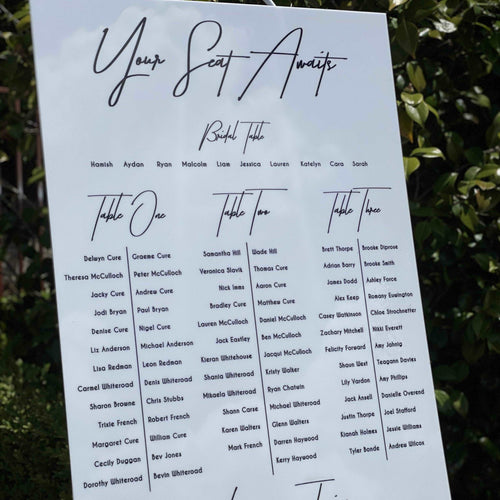 Your Seat Awaits
Bridal Table
Hamish Aydan Ryan Malcolm Liam Jessica Lauren Katelyn Cara Sarah
Table One
Delwyn Cure Graeme Cure
Theresa McCulloch Peter McCulloch
Jacky Cure Andrew Cure
Jodi Bryan Paul Bryan
Denise Cure Nigel Cure
Liz Anderson Michael Anderson
Lisa Redman Leon Redman
Carmel Whiteroad Denis Whiteroad
Sharon Browne Chris Stubbs
Trixie French Robert French
Margaret Cure William Cure
Cecily Duggan Bev Jones
Dorothy Whiteroad Bevin Whiteroad
Table Two
Samantha Hill Wade Hill
Veronica Slavik Thomas Cure
Nick Imms Aaron Cure
Bradley Cure Matthew Cure
Lauren McCulloch Daniel McCulloch
Jack Eastley Ben McCulloch
Kieran Whitehouse Jacqui McCulloch
Shania Whiteroad Kristy Walker
Mikaela Whiteroad Ryan Chatwin
Shann Carse Michael Whiteroad
Karen Walters Glenn Walters
Mark French Darren Haywood
Kerry Haywood
Table Three
Brett Thorpe Brooke Diprose
Adrian Barry Brooke Smith
James Dodd Ashley Force
Alex Keep Romany Euwington
Casey Watkinson Chloe Strochnetter
Zachary Mitchell Nikki Everett
Felicity Forward Amy Johnig
Shaun West Teagann Davies
Lily Yardon Amy Phillips
Jack Ansell Danielle Overend
Justin Thorpe Joel Stafford
Kianah Holmes Jessie Williams
Tyler Bonde Andrew Wilcox